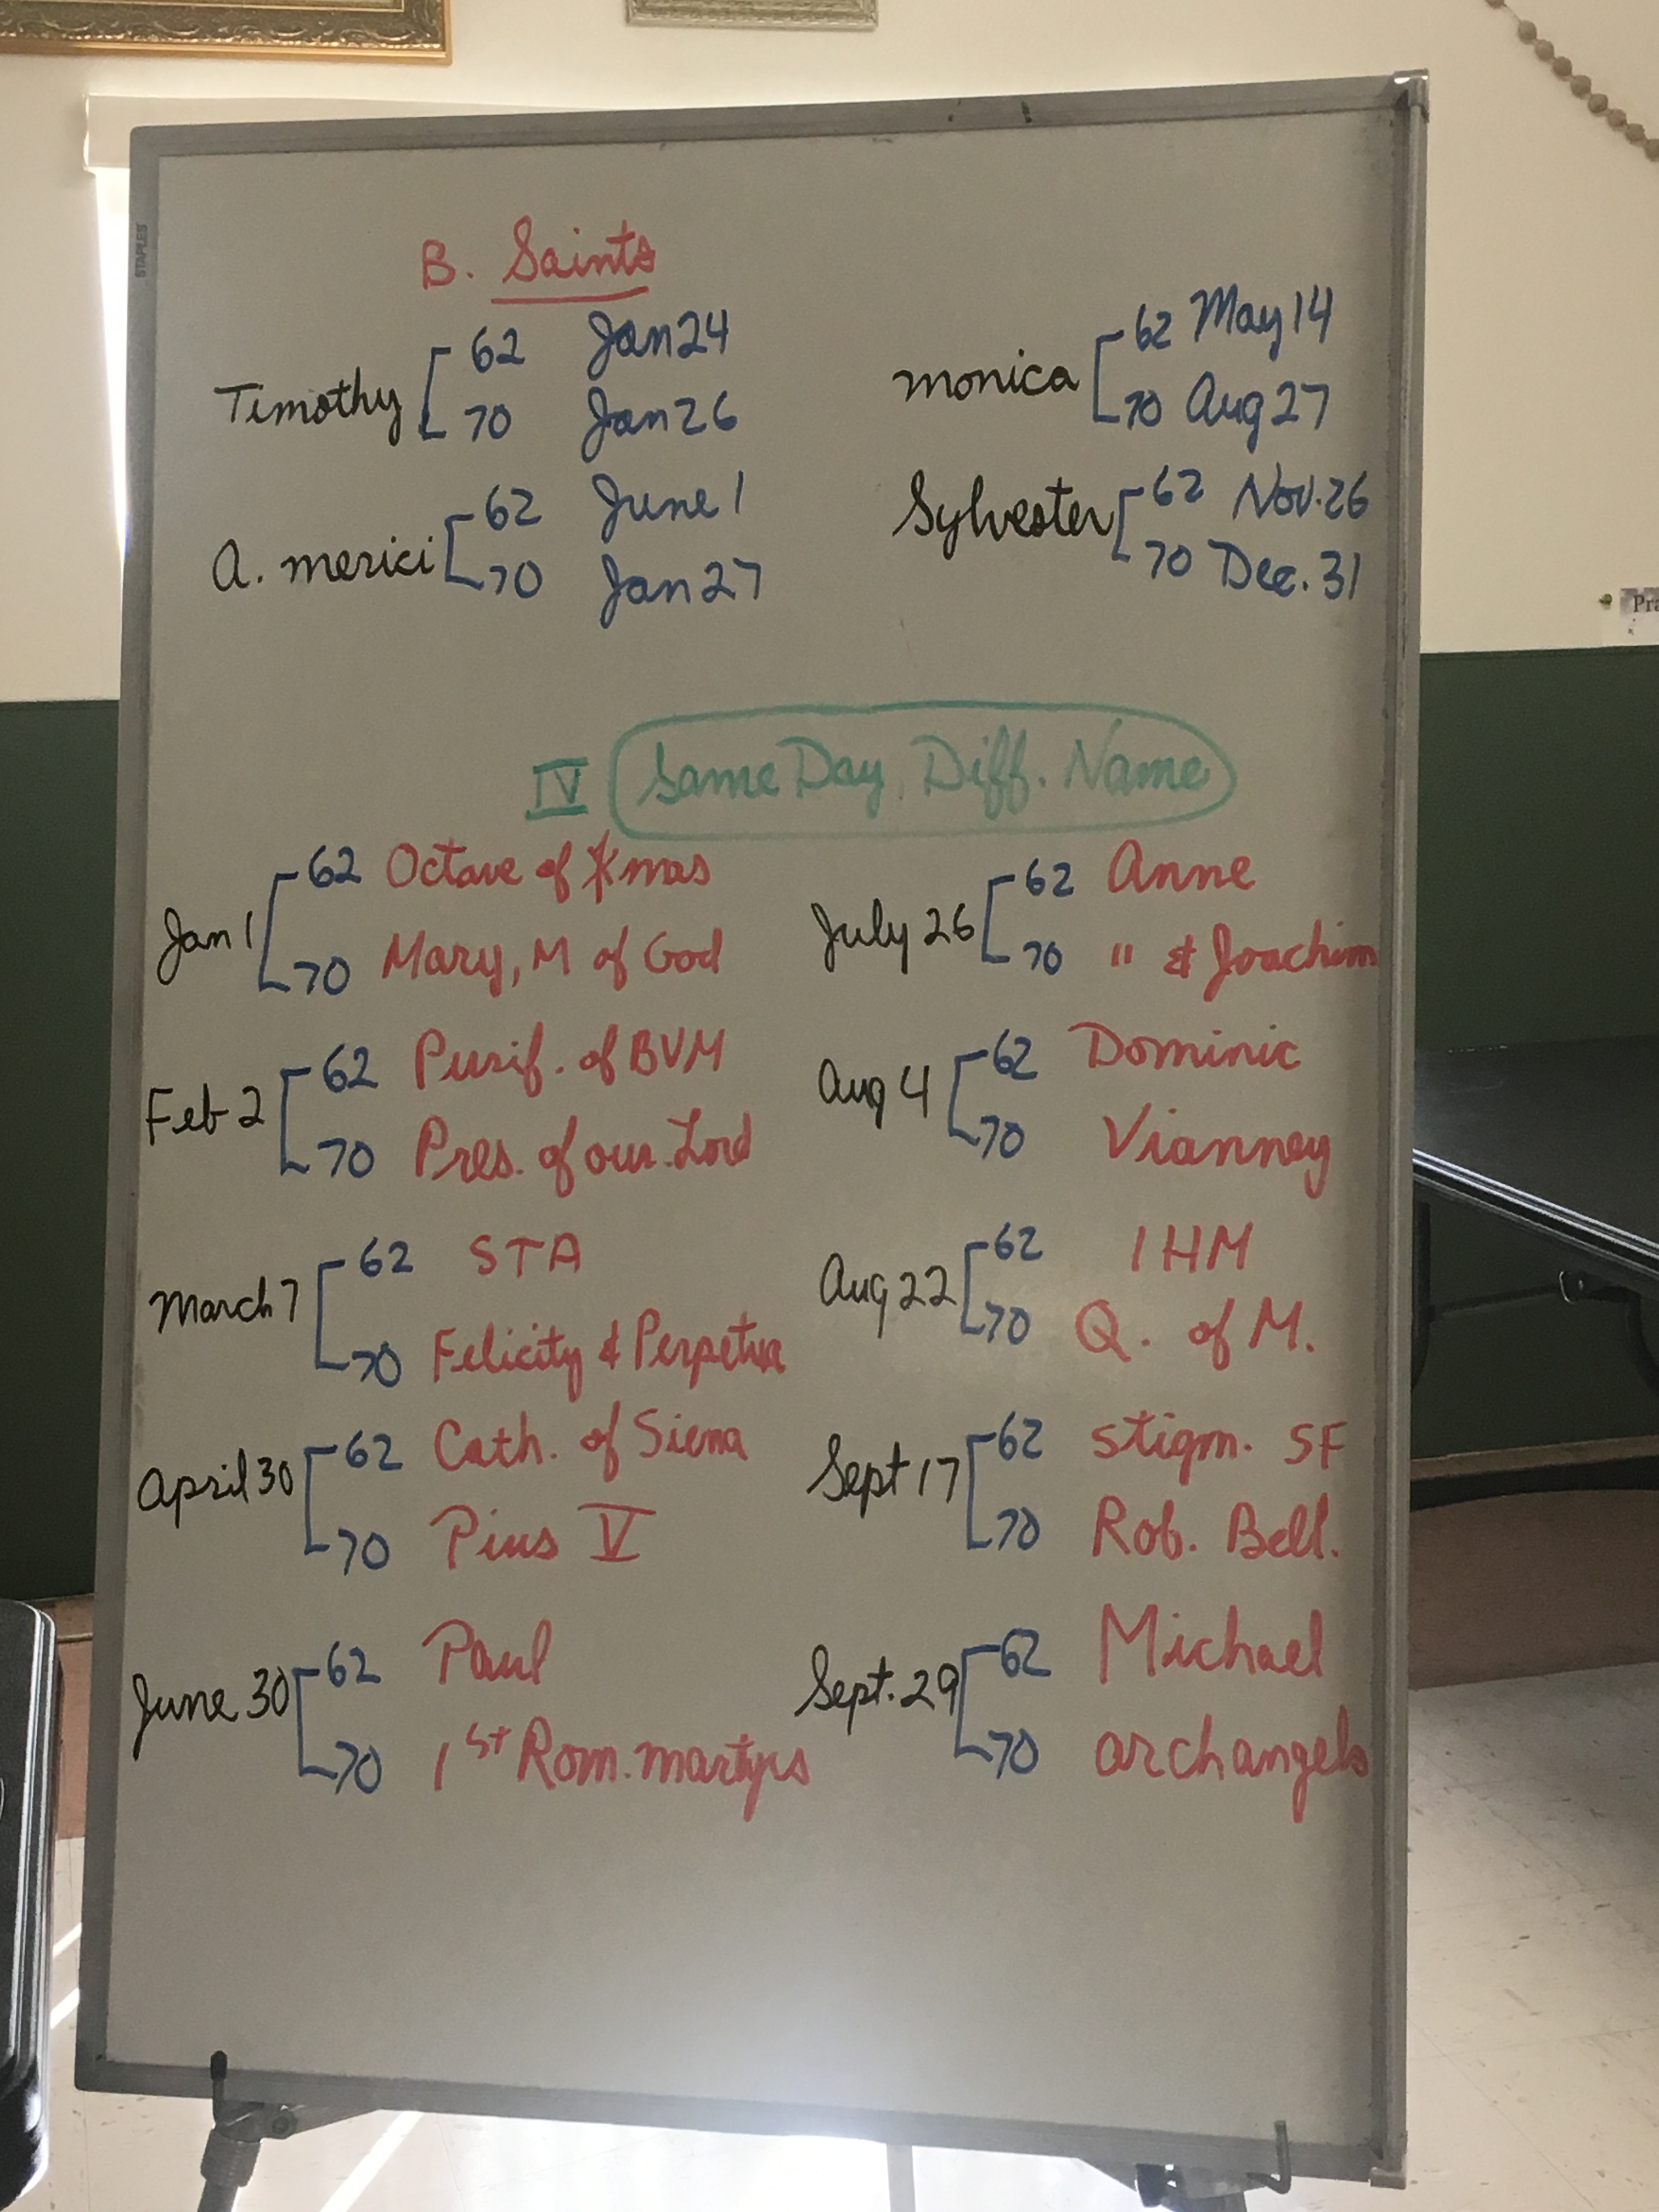 STAPLES
B. Saints
Timothy 62 Jan 24
70 Jan 26
A. merici 62 June 1
70 Jan 27
monica 62 May 14
70 Aug 27
Sylvester 62 Nov. 26
70 Dec. 31
IV Same Day, Diff. Name
Jan 1 62 Octave of Xmas
70 Mary, M of God
Feb 2 62 Purif. of BVM
70 Pres. of our Lord
March 7 62 STA
70 Felicity & Perpetua
April 30 62 Cath. of Siena
70 Pius V
June 30 62 Paul
70 1st Rom. martyrs
July 26 62 Anne
70 " & Joachim
Aug 4 62 Dominic
70 Vianney
Aug 22 62 IHM
70 Q. of M.
Sept 17 62 Stigm. SF
70 Rob. Bell.
Sept. 29 62 Michael
70 archangels